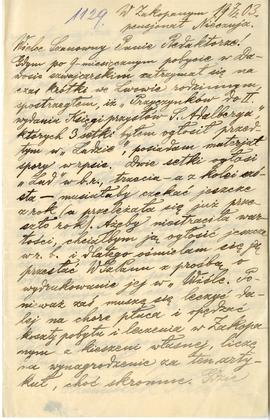 1129.
W Zakopanym 19 5/2 03.
pensjonat Nieczuja.
Wielce Szanowny Panie Redaktorze!
Gdym po 9-miesięcznym pobycie w Da-
vosie szwajcarskim zatrzymał się na
czas krótki we Lwowie rodzinnym
spostrzegłem, iż "Przyczynków do II
wydania Księgi przysłów S. Adalberga"
których 3 setki byłem ogłosił przed-
tym w "Ludzie" posiadam materjał
spory w rpsie. Dwie setki ogłosi
"Lud" w b.r., trzecia - a z kolei szó-
sta - musiałaby czekać jeszcze
z rok (a przeleżała się już prze-
szło rok). Ażeby niestraciła war-
tości, chciałbym ją ogłosić jeszcze
w r. b. i dlatego ośmielam się ją
przesłać WPanu z prośbą o
wydrukowanie jej w "Wiśle". Po-
nieważ zaś muszę się leczyć da-
lej na chore płuca i opędzać
koszty pobytu i leczenia w Zakopa-
nym z kieszeni własnej, liczę
na wynagrodzenie za ten arty-
kuł, choć skromne.